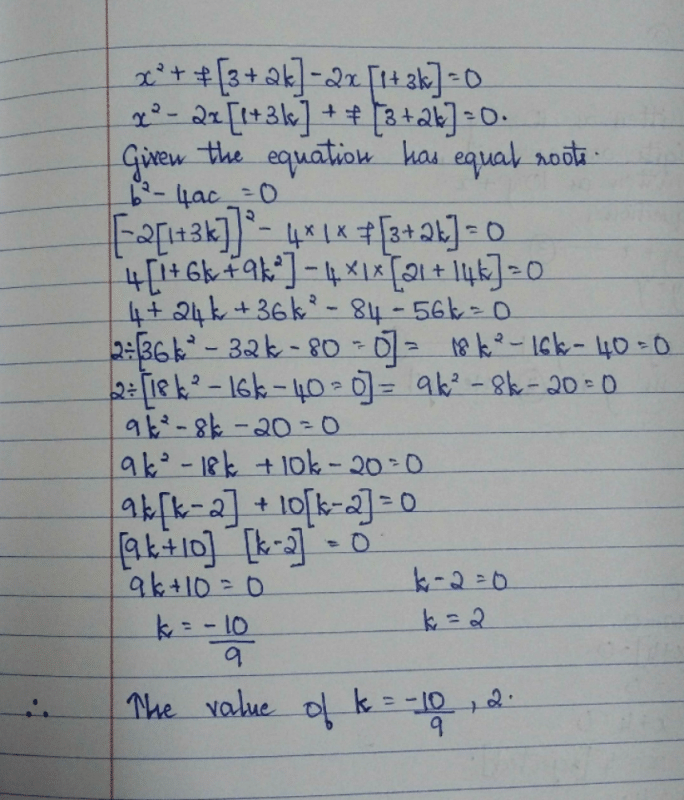 x² + 7[3+2k] - 2x[1+3k] = 0
x² - 2x[1+3k] + 7[3+2k] = 0.
Given the equation has equal roots.
b² - 4ac = 0
[-2[1+3k]]² - 4×1×7[3+2k] = 0
4[1+6k+9k²] - 4×1×[21+14k] = 0
4 + 24k + 36k² - 84 - 56k = 0
2÷[36k² - 32k - 80 = 0] = 18k² - 16k - 40 = 0
2÷[18k² - 16k - 40 = 0] = 9k² - 8k - 20 = 0
9k² - 8k - 20 = 0
9k² - 18k + 10k - 20 = 0
9k[k-2] + 10[k-2] = 0
[9k+10] [k-2] = 0
9k+10 = 0 k-2 = 0
k = -10/9 k = 2
∴ The value of k = -10/9, 2.